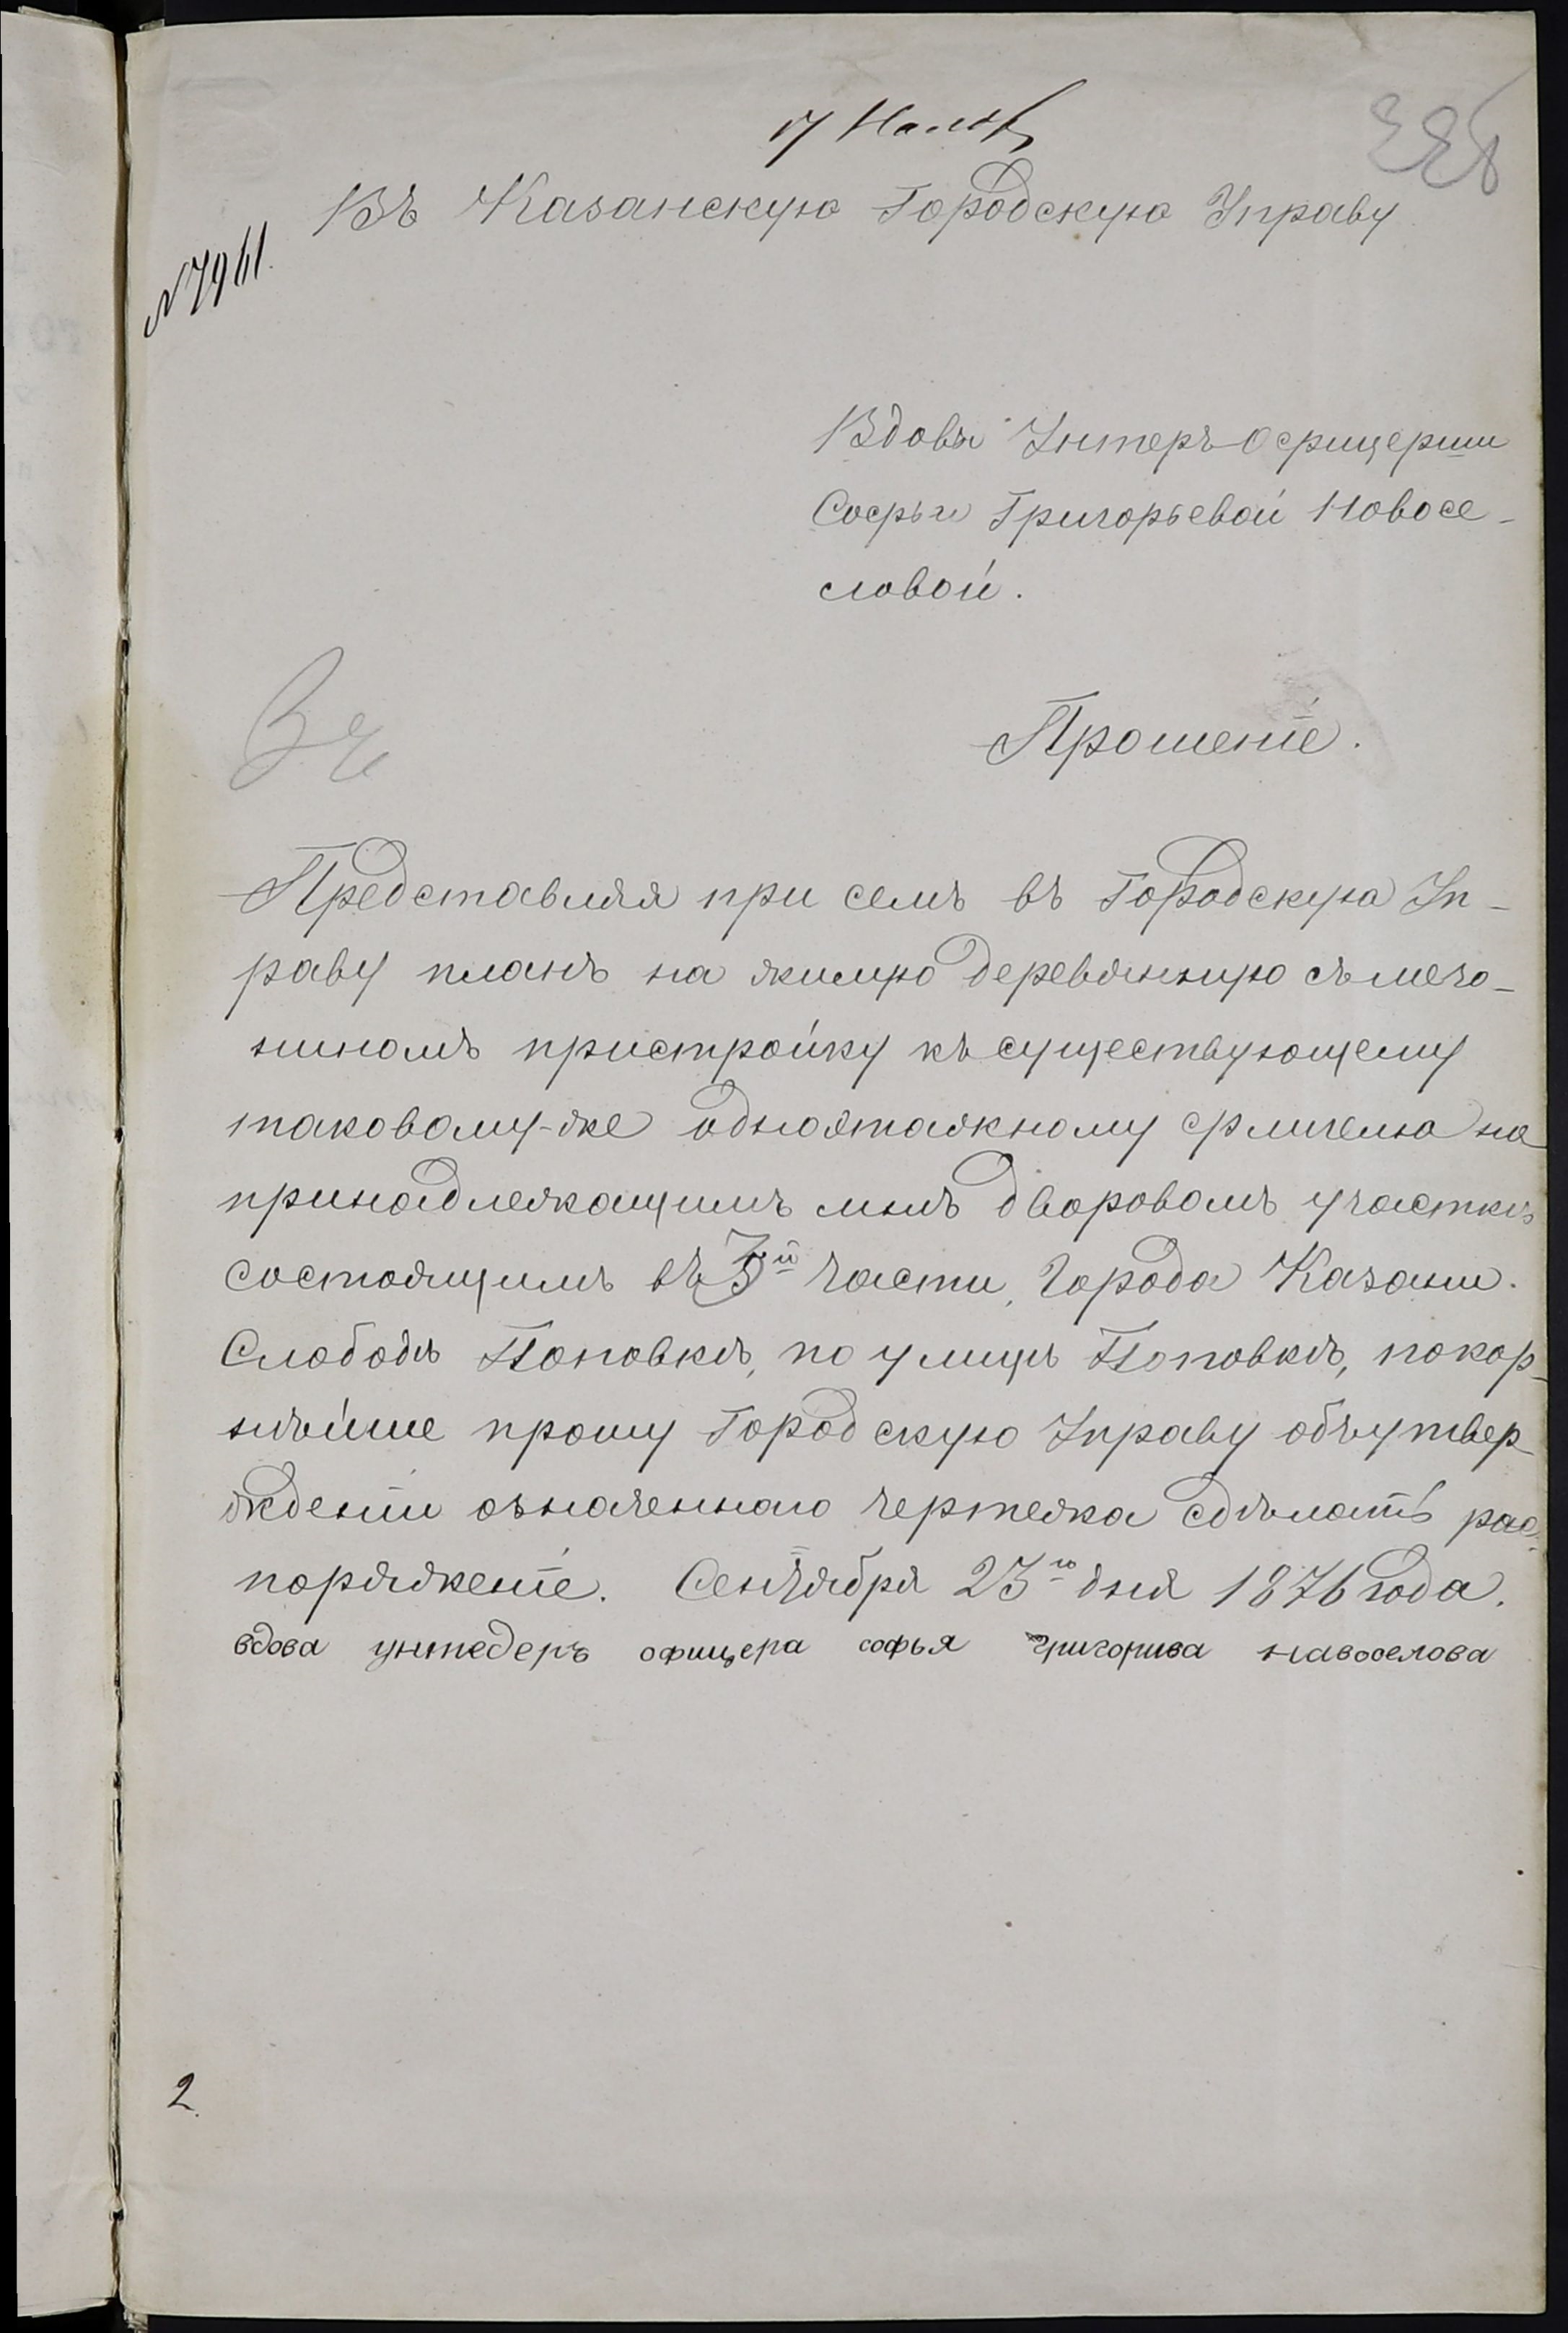 Въ Казанскую Городскую Управу
№ 7961.
Вдовы Унтеръ-Офицерши
Софьи Григорьевой Новосе-
ловой.
Прошеніе.
Представляя при семъ въ Городскую Уп-
раву планъ на жилую деревянную съ мезо-
ниномъ пристройку къ существующему
таковому-же одноэтажному флигелю на
принадлежащимъ мнѣ дворовомъ участкѣ
состоящимъ въ 3й части, Города Казани.
Слободѣ Поповкѣ, по улицѣ Поповкѣ, покор-
нѣйше прошу Городскую Управу объ утвер-
жденіи означеннаго чертежа сдѣлать рас-
поряженіе. Сентября 23го дня 1876 года.
вдова унтедеръ офицера софья григорива навоселова
2.